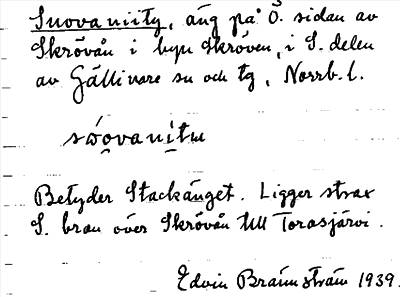 Suovaniity, äng på Ö. sidan av
Skrövån i byn Skröven, i S. delen
av Gällivare sn och tg, Norrb. l.
sẃovanitu
Betyder Stackänget. Ligger strax
S. bron över Skrövån till Torasjärvi.
Edvin Brännström 1939.